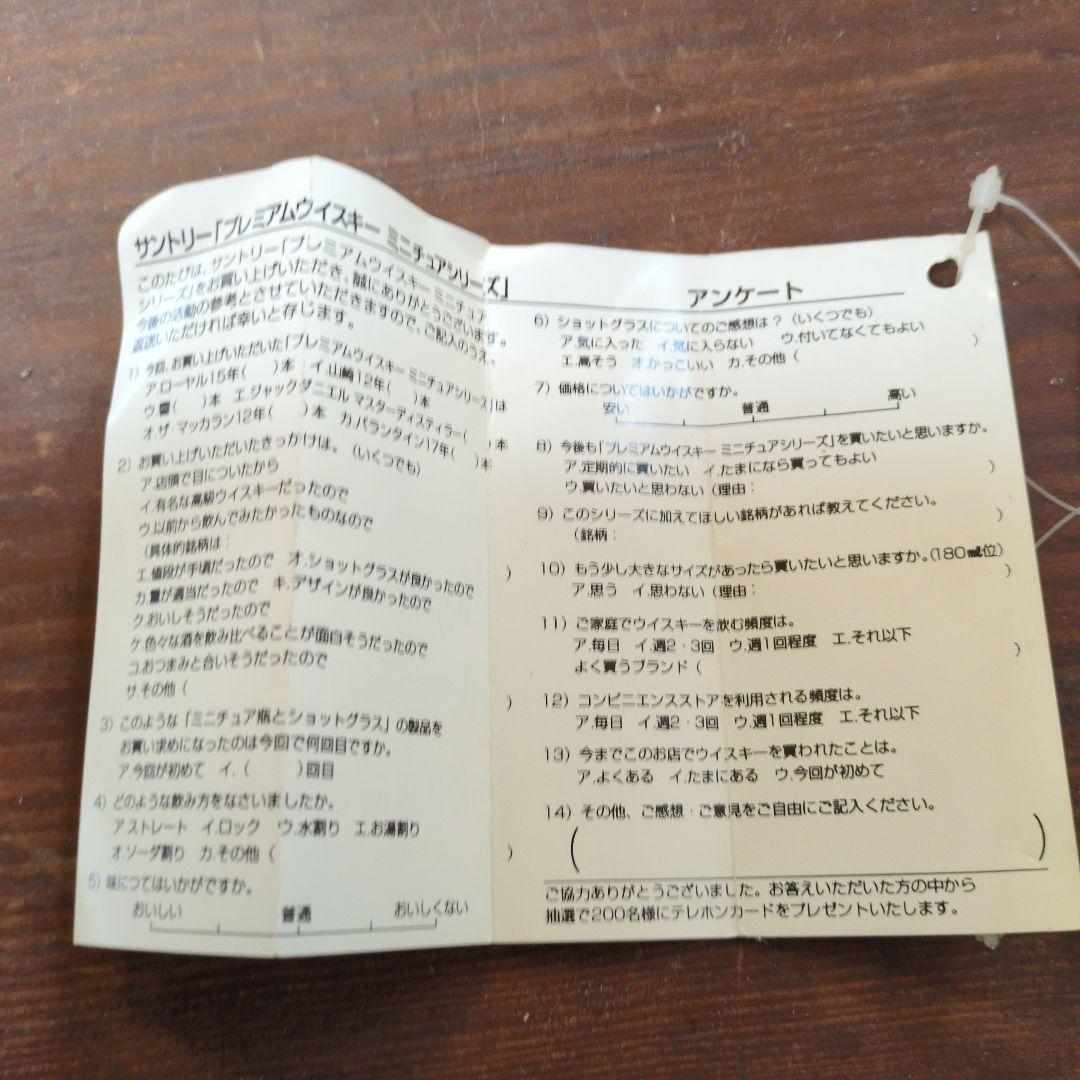 サントリー「プレミアムウイスキー ミニチュアシリーズ」 アンケート
このたびは、サントリー「プレミアムウイスキー ミニチュア
シリーズ」をお買い上げいただき、誠にありがとうございます。
今後の活動の参考とさせていただきますので、ご記入のうえ、
返送いただければ幸いと存じます。
1) 今回、お買い上げいただいた「プレミアムウイスキー ミニチュアシリーズ」は
ア.ローヤル15年(　　)本　イ.山崎12年(　　)本
ウ.響(　　)本　エ.ジャックダニエル マスターディスティラー(　　)本
オ.ザ・マッカラン12年(　　)本　カ.バランタイン17年(　　)本
2) お買い上げいただいたきっかけは。(いくつでも)
ア.店頭で目についたから
イ.有名な高級ウイスキーだったので
ウ.以前から飲んでみたかったものなので
(具体的銘柄は：　　)
エ.値段が手頃だったので　オ.ショットグラスが良かったので
カ.量が適当だったので　キ.デザインが良かったので
ク.おいしそうだったので
ケ.色々な酒を飲み比べることが面白そうだったので
コ.おつまみと合いそうだったので
サ.その他(　　)
3) このような「ミニチュア瓶とショットグラス」の製品を
お買い求めになったのは今回で何回目ですか。
ア.今回が初めて　イ.(　　)回目
4) どのような飲み方をなさいましたか。
ア.ストレート　イ.ロック　ウ.水割り　エ.お湯割り
オ.ソーダ割り　カ.その他(　　)
5) 味につてはいかがですか。
おいしい　普通　おいしくない
6) ショットグラスについてのご感想は？(いくつでも)
ア.気に入った　イ.気に入らない　ウ.付いてなくてもよい
エ.高そう　オ.かっこいい　カ.その他(　　)
7) 価格についてはいかがですか。
安い　普通　高い
8) 今後も「プレミアムウイスキー ミニチュアシリーズ」を買いたいと思いますか。
ア.定期的に買いたい　イ.たまになら買ってもよい
ウ.買いたいと思わない(理由：　　)
9) このシリーズに加えてほしい銘柄があれば教えてください。
(銘柄：　　)
10) もう少し大きなサイズがあったら買いたいと思いますか。(180㎖位)
ア.思う　イ.思わない(理由：　　)
11) ご家庭でウイスキーを飲む頻度は。
ア.毎日　イ.週2・3回　ウ.週1回程度　エ.それ以下
よく買うブランド(　　)
12) コンビニエンスストアを利用される頻度は。
ア.毎日　イ.週2・3回　ウ.週1回程度　エ.それ以下
13) 今までこのお店でウイスキーを買われたことは。
ア.よくある　イ.たまにある　ウ.今回が初めて
14) その他、ご感想・ご意見をご自由にご記入ください。
(　　)
ご協力ありがとうございました。お答えいただいた方の中から
抽選で200名様にテレホンカードをプレゼントいたします。